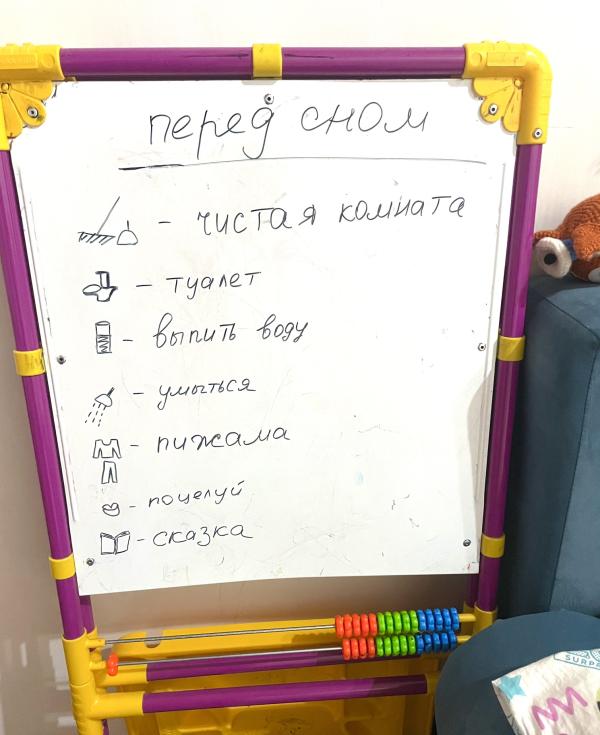 перед сном
- чистая комната
- туалет
- выпить воду
- умыться
- пижама
- поцелуй
- сказка